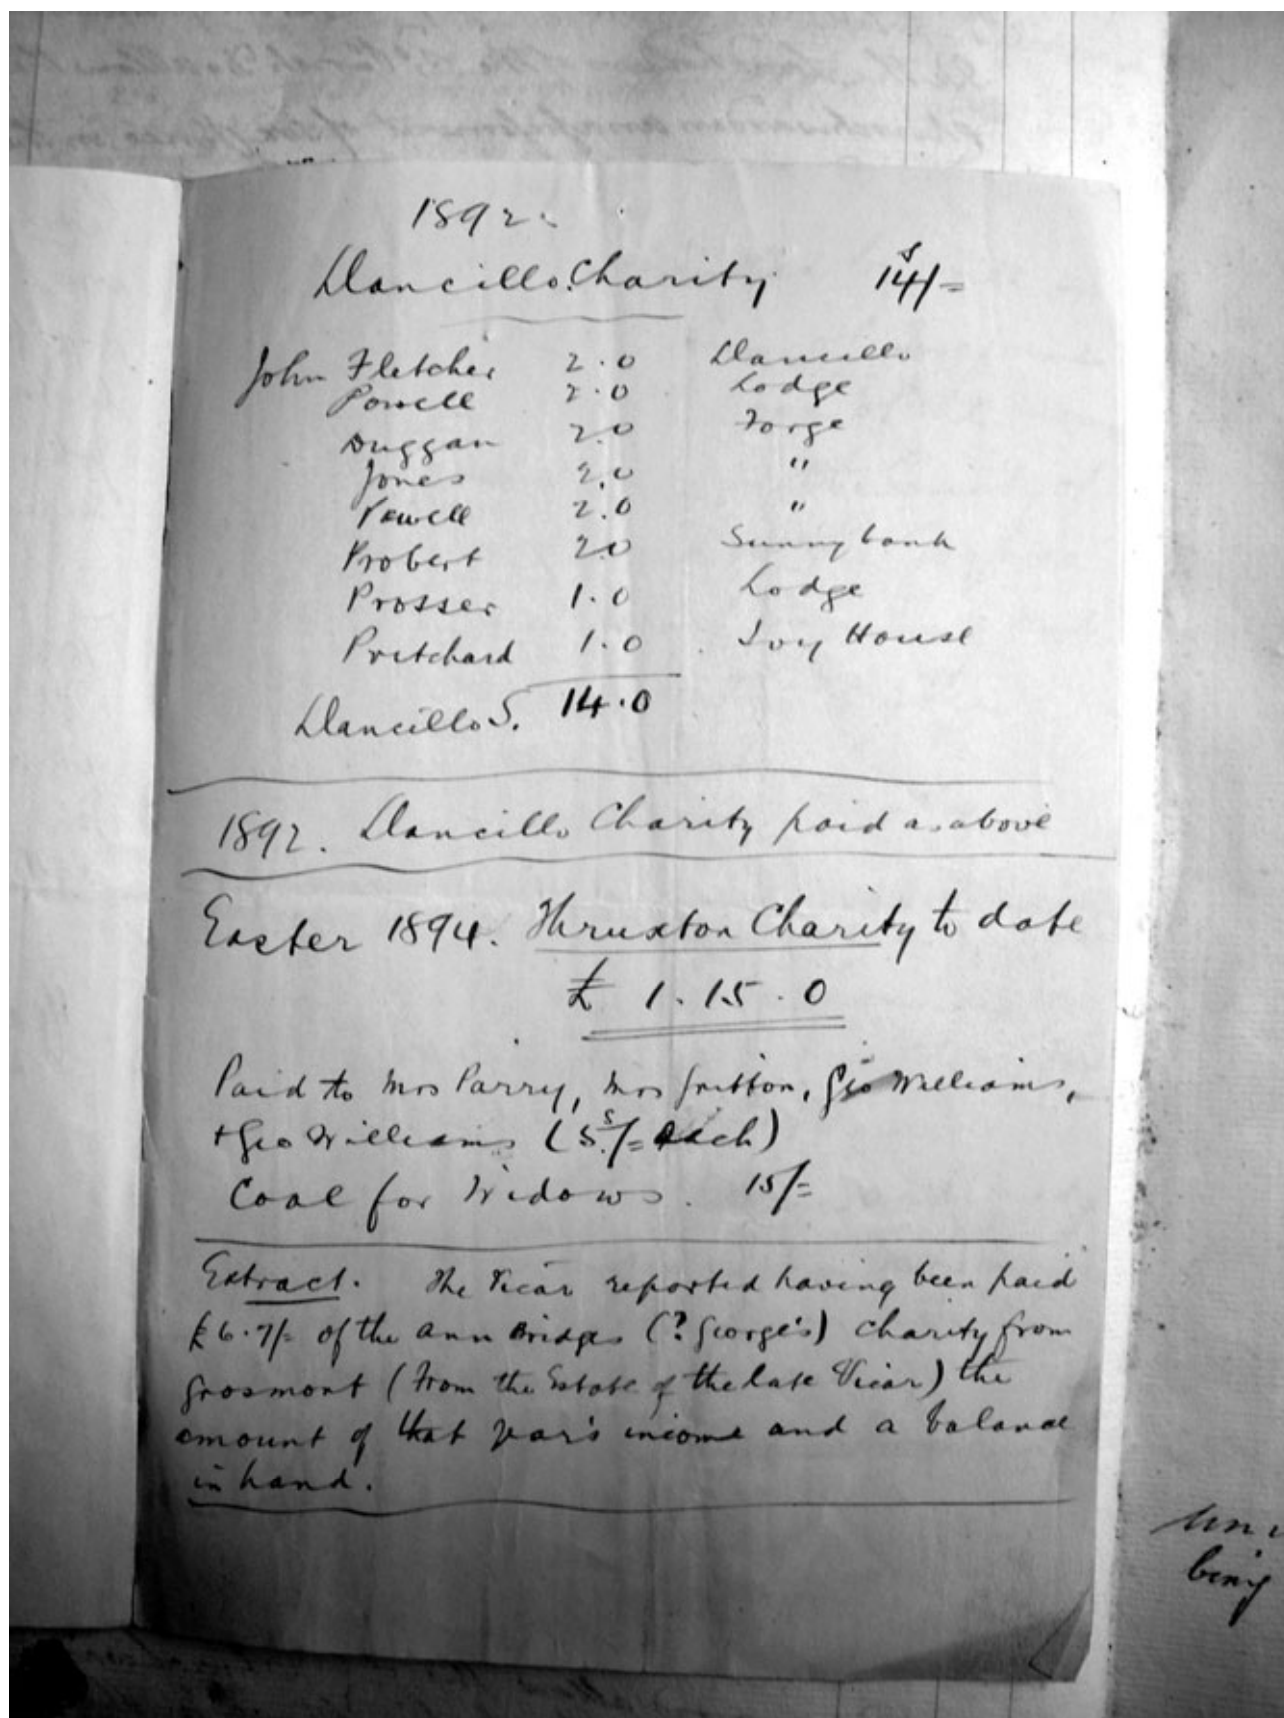 1892.
Llancillo Charity 14/=
John Fletcher 2.0 Llancillo
Powell 2.0 Lodge
Duggan 2.0 Forge
Jones 2.0 "
Powell 2.0 "
Probert 2.0 Sunnybank
Prosser 1.0 Lodge
Pritchard 1.0 Ivy House
Llancillo S. 14.0
1892. Llancillo Charity paid as above
Easter 1894. Thruxton Charity to date
£ 1.15.0
Paid to Mrs Parry, Mrs Gritton, Geo Williams,
+ Geo Williams (5/= each)
Coal for Widows. 15/=
Extract. The Vicar reported having been paid
£6.7/= of the Ann Bridges (? George's) charity from
Grosmont (from the Estate of the late Vicar) the
amount of that year's income and a balance
in hand.
being